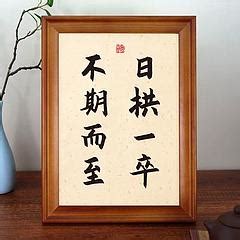 日拱一卒
不期而至